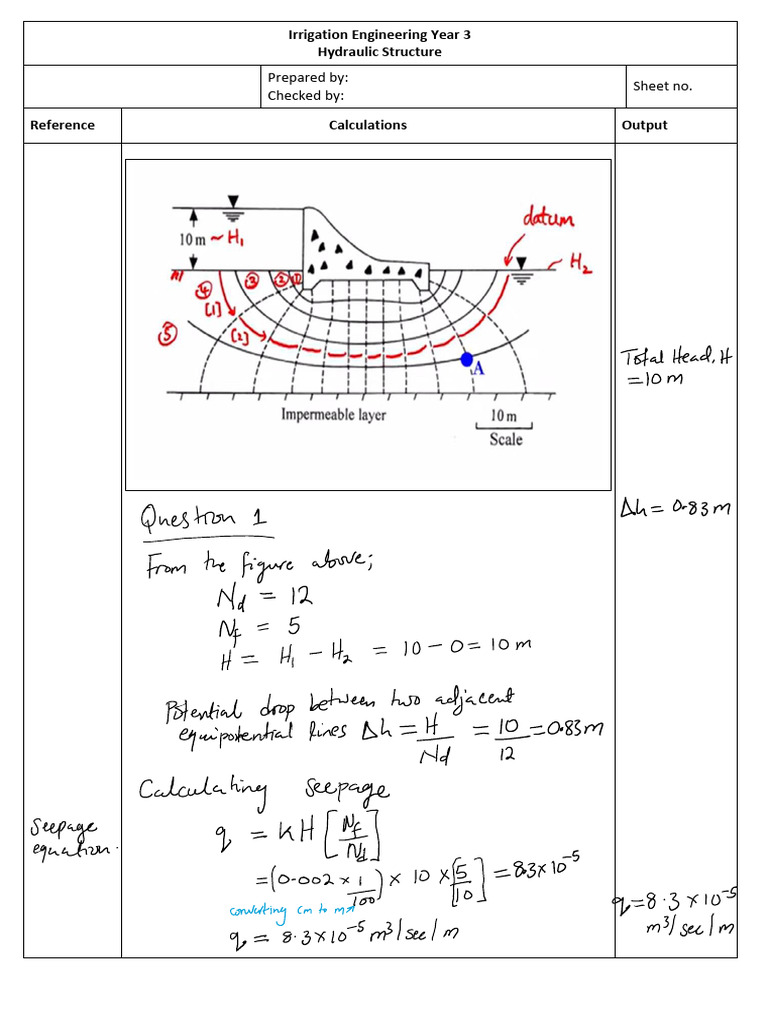 Irrigation Engineering Year 3
Hydraulic Structure
Prepared by:
Checked by:
Sheet no.
Reference
Calculations
Output
datum
10 m ~ H1
~ H2
① ② ③ ④ ⑤
[1]
[2]
A
Impermeable layer
10 m
Scale
Total Head, H
= 10 m
Δh = 0.83 m
Question 1
From the figure above;
Nd = 12
Nf = 5
H = H1 - H2 = 10 - 0 = 10 m
Potential drop between two adjacent
equipotential lines Δh = H/Nd = 10/12 = 0.83 m
Calculating seepage
Seepage
equation.
q = KH [Nf/Nd]
= (0.002 × 1/100) × 10 × [5/10] = 8.3 × 10-5
converting cm to m
q = 8.3 × 10-5 m3/sec/m
q = 8.3 × 10-5
m3/sec/m